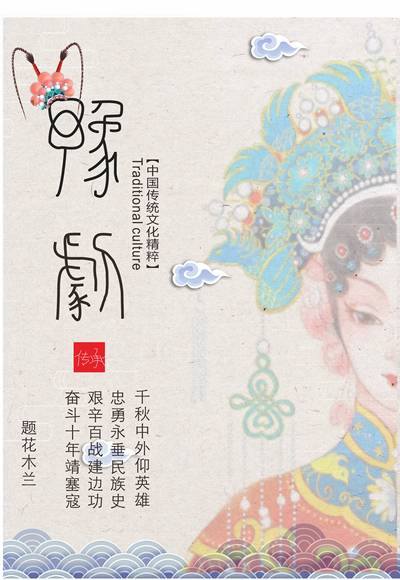 豫劇
【中国传统文化精粹】
Traditional culture
传承
千秋中外仰英雄
忠勇永垂民族史
艰辛百战建边功
奋斗十年靖塞寇
题花木兰